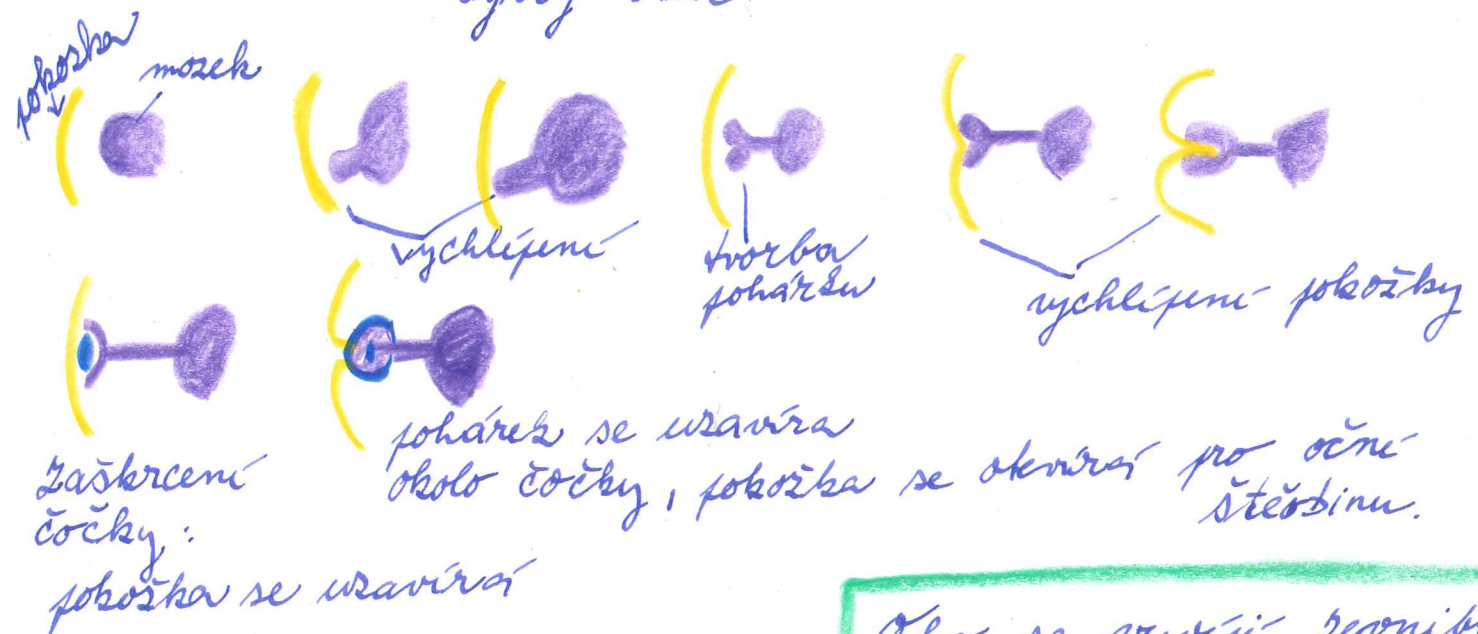 pokožka
mozek
vychlípení
tvorba
pohárku
vychlípení pokožky
Zaškrcení
čočky:
pokožka se uzavírá
pohárek se uzavírá
okolo čočky, pokožka se otvírá pro oční
štěrbinu.
Oko se